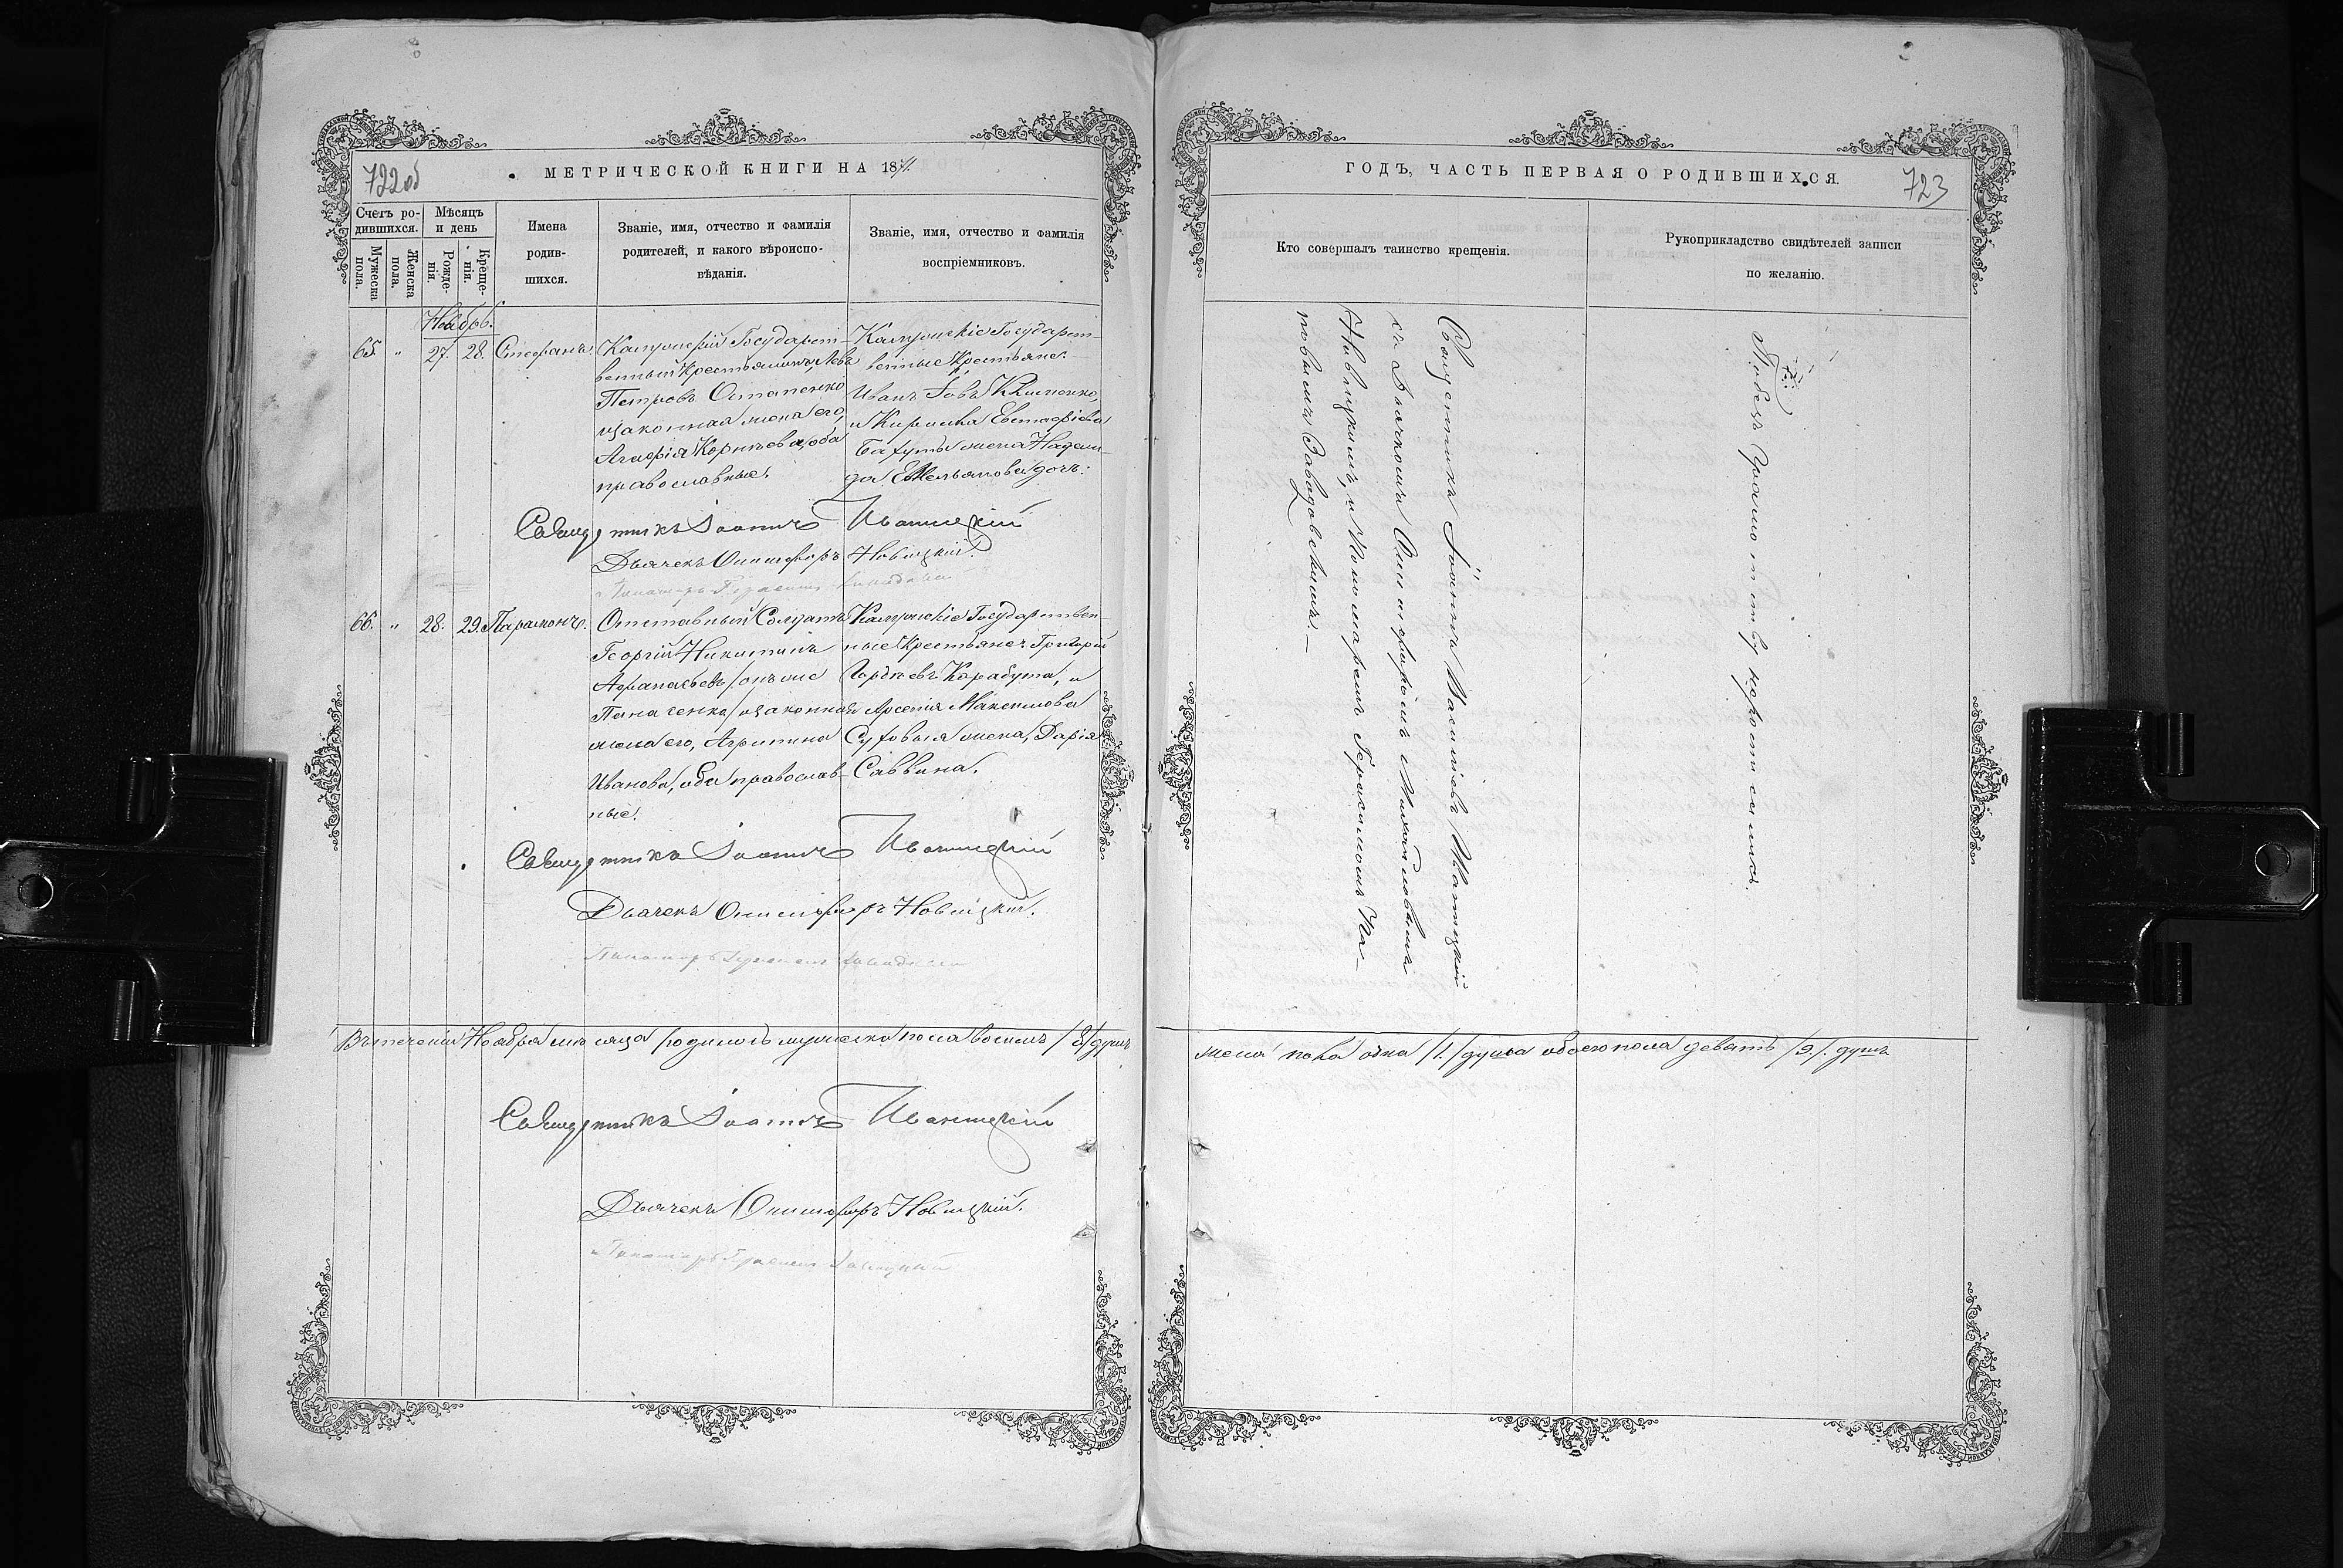 722об
МЕТРИЧЕСКОЙ КНИГИ НА 1871.
Счетъ родившихся.
Мѣсяцъ и день
Имена родившихся.
Званіе, имя, отчество и фамилія
родителей, и какого вѣроисповѣданія.
Званіе, имя, отчество и фамилія
воспріемниковъ.
Мужеска пола.
Женска пола.
Рожденія.
Крещенія.
Ноябрь.
65. " 27. 28. Стефанъ.
Государст-
венный Крестьянинъ, Левъ
Петровъ Остапенко,
и законная жена его,
Агафія Корнѣева, оба
православные.
Государст-
венные Крестьяне:
Иванъ Іовъ Клименко,
и Кирилла Евстафіева
жена Надеж-
да Емельянова дочь:
Священникъ Іоаннъ Иваницкій
Дьячекъ Онисифоръ Новицкій.
66. " 28. 29. Парамонъ.
Отставный Солдатъ
Георгій Никитинъ
Афанасьевъ /онъ же
Панасенко/ и законная
жена его, Агрипина
Иванова, оба православ-
ные.
Государствен-
ные Крестьяне: Григорій
Гордѣевъ Карабута, и
Арсенія Максимова
жена, Дарія
Саввина.
Священникъ Іоаннъ Иваницкій
Дьячекъ Онисифоръ Новицкій.
Въ теченіи Ноября мѣсяца родилось мужеска пола восемь /8/ душъ
Священникъ Іоаннъ Иваницкій
Дьячекъ Онисифоръ Новицкій.
723
ГОДЪ, ЧАСТЬ ПЕРВАЯ О РОДИВШИХСЯ.
Кто совершалъ таинство крещенія.
Рукоприкладство свидѣтелей записи
по желанію.
Священникъ Іоаннъ Василіевъ Иваницкій
съ Дьячкомъ Онисифоромъ Михайловымъ
Новицкимъ, и Пономаремъ Герасимомъ Ка-
повымъ Завадовскимъ.
женска пола одна /1./ душа обоего пола девять /9./ душъ